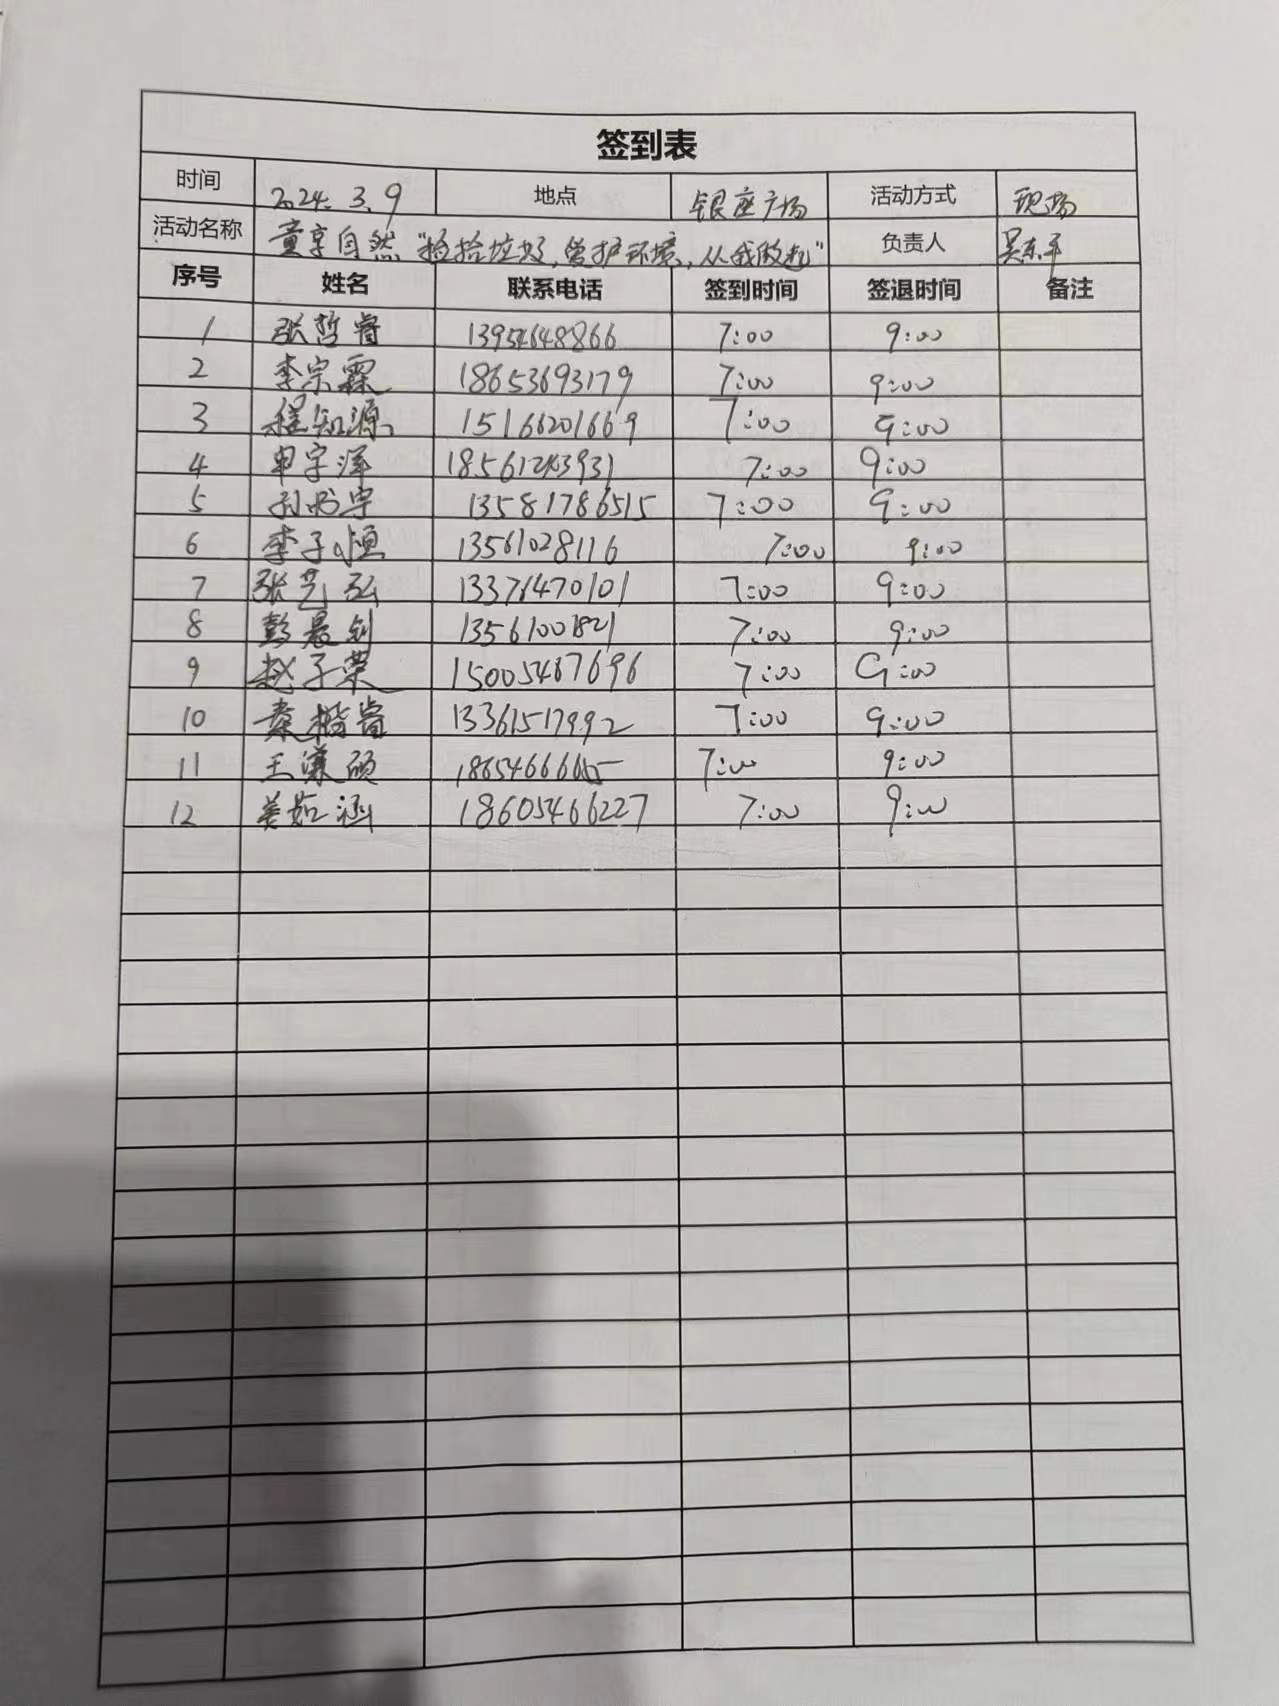 签到表
时间 2024.3.9 地点 银座广场 活动方式 现场
活动名称 童享自然“捡拾垃圾,爱护环境,从我做起” 负责人 吴东平
序号 姓名 联系电话 签到时间 签退时间 备注
1 张哲睿 13954648866 7:00 9:00
2 李宗霖 18653693179 7:00 9:00
3 程知源 15166201669 7:00 9:00
4 申宇泽 18561243931 7:00 9:00
5 孙书宇 13581786515 7:00 9:00
6 李子恒 13561028116 7:00 9:00
7 张艺弘 13371470101 7:00 9:00
8 彭晨钊 13561001821 7:00 9:00
9 赵子荣 15005467696 7:00 9:00
10 秦楷睿 13361517992 7:00 9:00
11 王濂硕 7:00 9:00
12 姜茹涵 18605466227 7:00 9:00